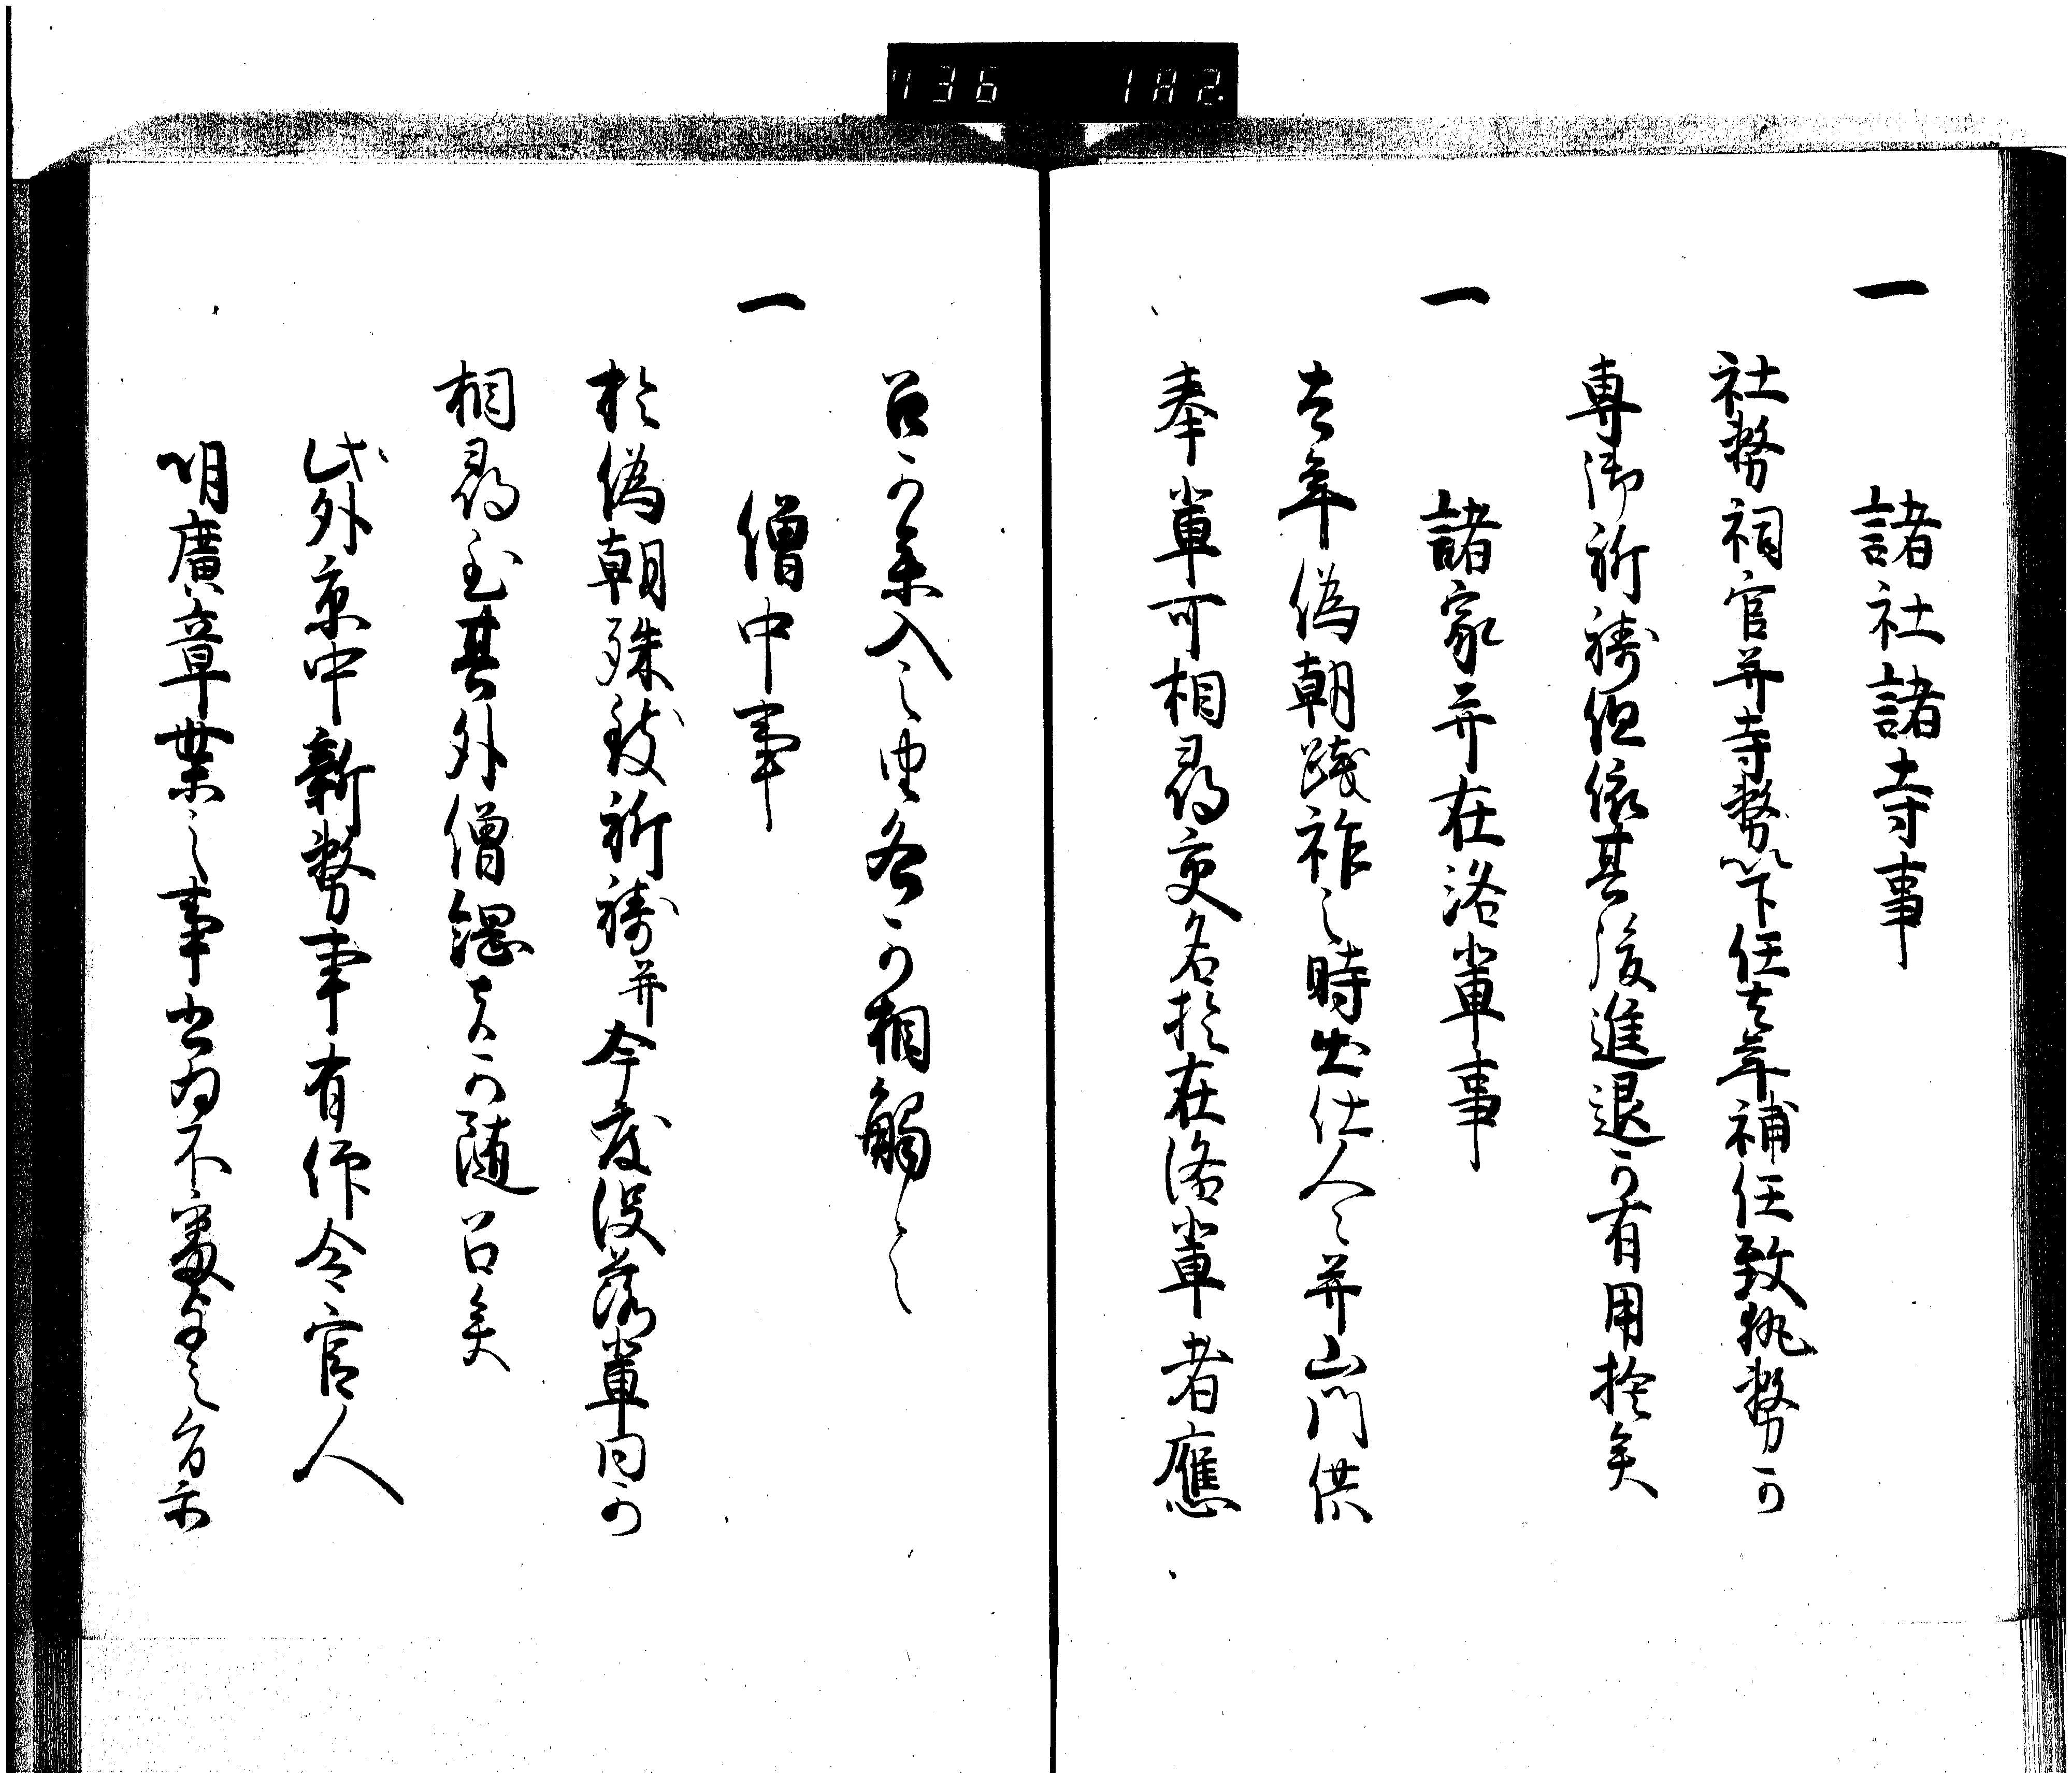 736 182
一 諸社諸寺事
社務祠官并寺務以下任去年補任致執務可
専御祈祷但依其後進退可有用捨矣
一 諸家并在洛輩事
去年偽朝践祚之時出仕人々并山門供
奉輩可相尋交名於在洛輩者應
召可参入之由各可相觸之
一 僧中事
於偽朝殊致祈祷并今度没落輩同可
相尋至其外僧綱者可随召矣
此外京中新務事有仰合官人
明廣章業之事出為不審之旨示